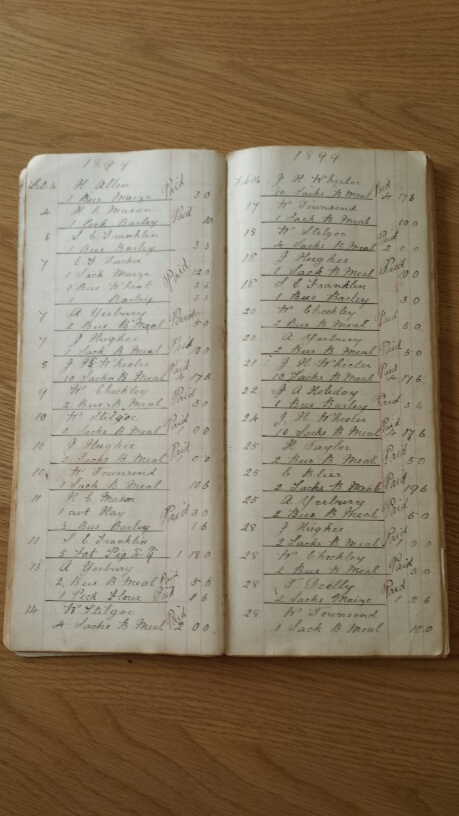 1899
Feb 4 H Allen Paid
1 Bus Maize 3 0
4 H E Mason Paid
1 Peck Barley 10
6 S E Franklin
1 Bus Barley 3 3
7
1 Sack Maize Paid 12 0
1 Bus Wheat 3 6
1 Barley 3 3
7 A Yerbury
2 Bus B Meal 5 0
7 J Hughes
1 Sack B Meal Paid
8 J H Wheeler
10 Sacks B Meal Paid 4 17 6
9 W Checkley
2 Bus B Meal Paid 5 0
10 W Stilgoe
Sacks B Meal Paid 0 0
10 J Hughes
Sacks B Meal Paid 0 0
10 W Townsend
1 Sack B Meal 10 6
11 H E Mason
1 cwt Hay Paid 3 0
Bus Barley 1 6
11 S E Franklin
1 18 0
13 A Yerbury
2 Bus B Meal Paid 5 6
1 Peck Flour Paid 1 6
14 W Stilgoe
4 Sacks B Meal Paid 2 0 0
1899
Feb 16 J H Wheeler
10 Sacks B Meal Paid 4 17 6
17 W Townsend
1 Sack B Meal 10 0
18 W Stilgoe
4 Sacks B Meal Paid 2 0 0
18 J Hughes
1 Sack B Meal Paid 10 0
18 S E Franklin
1 Bus Barley 3 0
20 W Checkley
2 Bus B Meal Paid 5 0
20 A Yerbury
2 Bus B Meal Paid 5 0
21 J H Wheeler
10 Sacks B Meal Paid 4 17 6
22 J A Hobday
1 Bus Barley Paid 3
24 J H Wheeler
10 Sacks B Meal Paid 4 17 6
25 H Taylor
2 Bus B Meal Paid 5 0
25 E Bliss
2 Sacks B Meal Paid 19 6
25 A Yerbury
2 Bus B Meal Paid 5 0
28 J Hughes
2 Sacks B Meal Paid 1 0 0
28 W Checkley
2 Bus B Meal Paid 5 0
28
2 Sacks Maize Paid 1 2 6
28 W Townsend
1 Sack B Meal 10 0